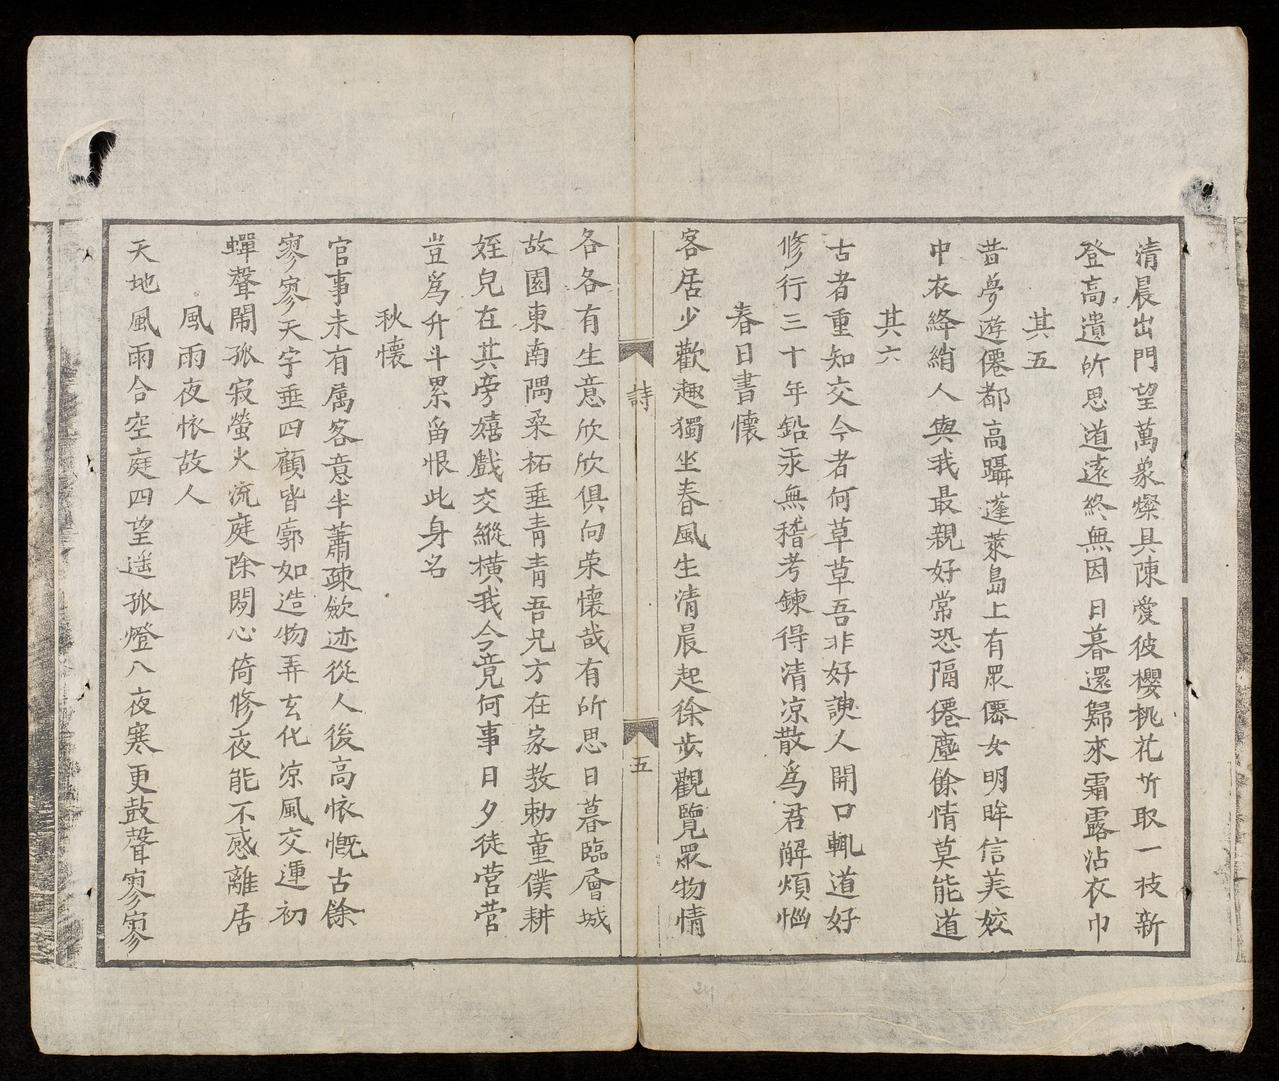 清晨出門望萬象燦具陳愛彼櫻桃花竹取一枝新
登高遺所思道遠終無因日暮還歸來霜露沾衣巾
其五
昔夢遊僊都高躡蓬萊島上有眾僊女明眸信美姣
中衣絳綃人與我最親好常恐隔僊塵餘情莫能道
其六
古者重知交今者何草草吾非好諛人開口輒道好
修行三十年鉛汞無稽考鍊得清凉散爲君解煩惱
春日書懷
客居少歡趣獨坐春風生清晨起徐步觀覽眾物情
詩
五
各各有生意欣欣俱向荣懷哉有所思日暮臨層城
故園東南隅桑柘垂青青吾兄方在家教勅童僕耕
姪兒在其旁嬉戲交縱橫我今竟何事日夕徒营营
豈爲升斗累留恨此身名
秋懷
官事未有属客意半蕭疎歛迹從人後高懷慨古餘
寥寥天宇垂四顧皆廓如造物弄玄化凉風交運初
蟬聲閙孤寂螢火流庭除閔心倚修夜能不感離居
風雨夜懷故人
天地風雨合空庭四望遥孤燈八夜寒更鼓聲寥寥